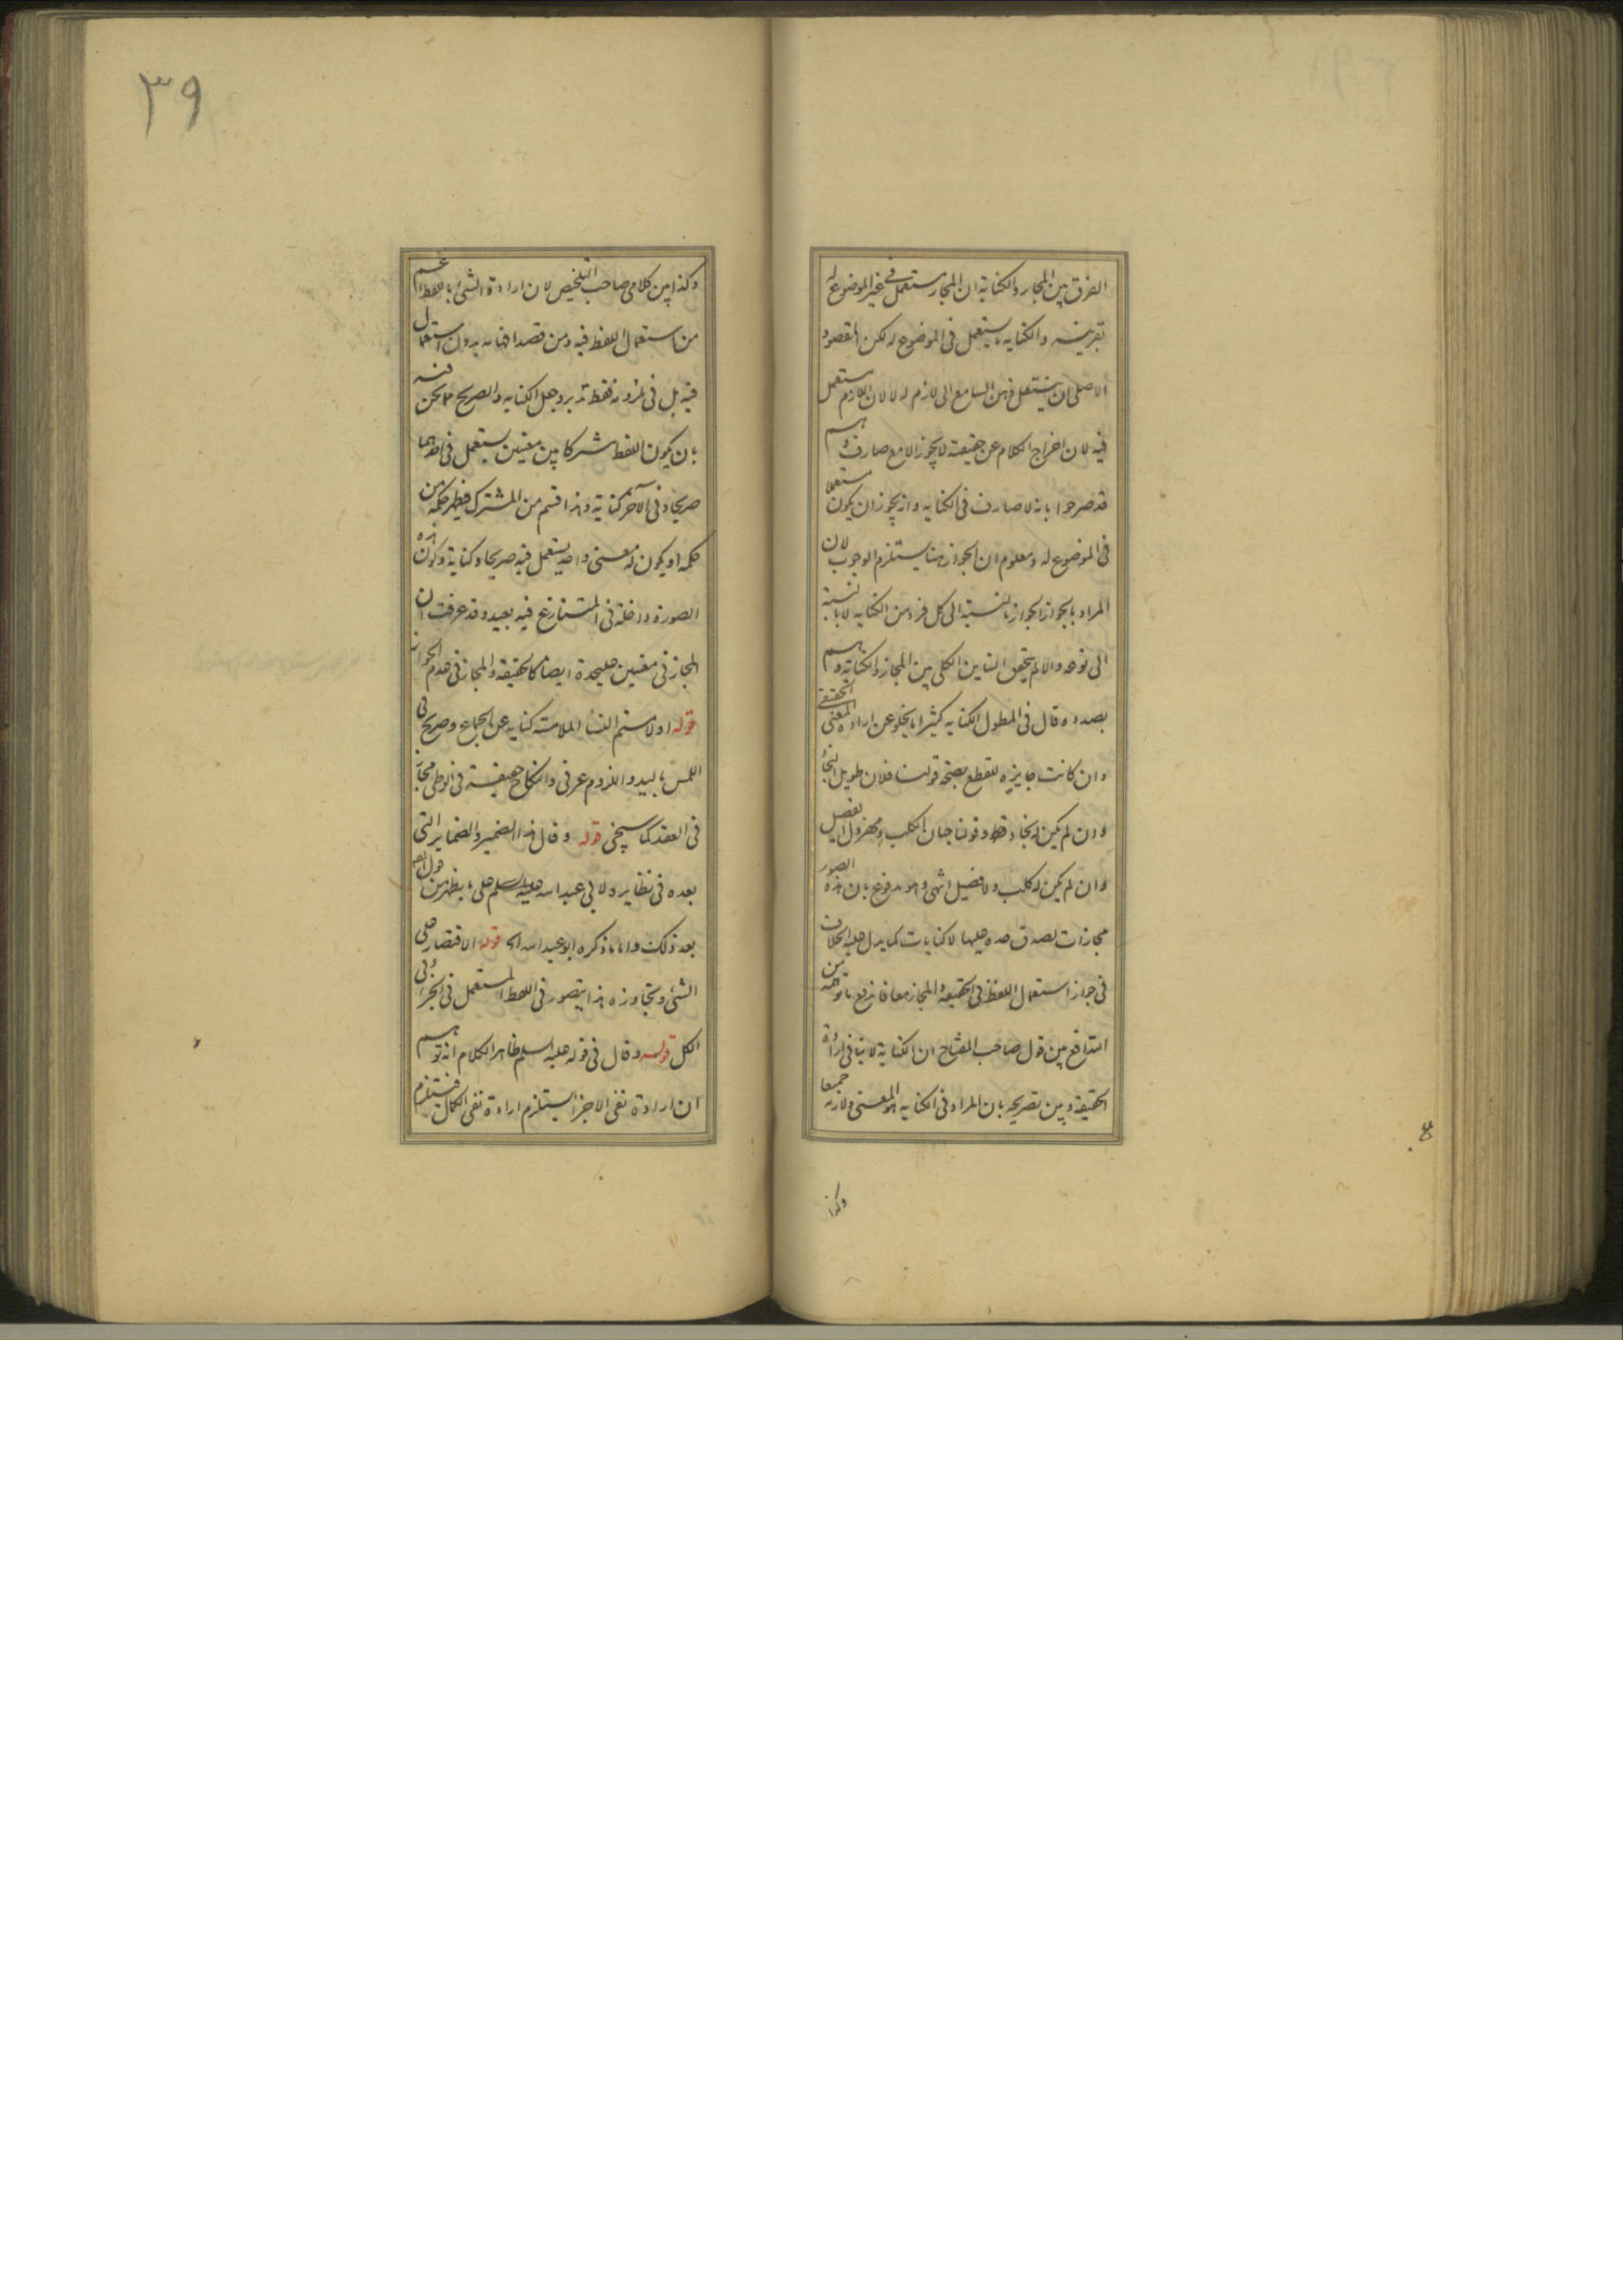 الفرق بين المجاز والكناية ان المجاز مستعمل في غير الموضوع له
بقرينة والكناية يستعمل فى الموضوع له لكن المقصود
الاصلى ان ينتقل ذهن السامع الى لازم له لا لان اللازم مستعمل
فيه لان اخراج الكلام عن حقيقته لا يجوز الا مع صارف وهم
قد صرحوا بانه لا صارف فى الكناية وانه يجوز ان يكون مستعملا
فى الموضوع له ومعلوم ان الجواز هنا يستلزم الوجوب لان
المراد بالجواز الجواز بالنسبة الى كل فرد من الكناية لا بالنسبة
الى نوعه والا لم يتحقق التباين الكلى بين المجاز والكناية وهم
بصدده قال فى المطول الكناية كثيرا ما يخلو عن ارادة المعنى الحقيقى
وان كانت جايزه للقطع بصحة قولنا فلان طويل النجاد
وان لم يكن له نجاد قط وقولنا جبان الكلب ومهزول الفصيل
وان لم يكن له كلب ولا فصيل انتهى وهو مدفوع بان هذه الصور
مجازات لصدق حده عليها لا كنايات كما يدل عليه الخلاف
فى جواز استعمال اللفظ فى الحقيقة والمجاز معا فاندفع ما توهمه من
التدافع بين قول صاحب المفتاح ان الكناية لا ينافى ارادة
الحقيقة وبين تصريحه بان المراد فى الكناية هو المعنى ولازمه جميعا
وكذا
٣٩
وكذا بين كلامى صاحب التلخيص لان ارادة الشئ باللفظ اعم
من استعمال اللفظ فيه ومن قصد افهامه بدون استعمال
فيه بل فى ملزومه فقط تدبر وجعل الكناية والصريح مما نحن فيه
بان يكون اللفظ مشتركا بين معنيين يستعمل فى احدهما
صريحا وفى الآخر كناية وهذا قسم من المشترك فيظهر حكمه من
حكمه او يكون له معنى واحد يستعمل فيه صريحا وكناية وكون هذه
الصورة داخلة فى المتنازع فيه بعيد وقد عرفت ان
المجاز فى معنيين عليحدة ايضا كالحقيقة والمجاز فى عدم الجواز
قوله او لامستم النسا الملامسة كناية عن الجماع وصريح فى
اللمس باليد واللزوم عرفى والنكاح حقيقة فى الوطى مجاز
فى العقد كما سيجئ قوله وقال هذا الضمير والضماير التى
بعده فى نظايره لابى عبد الله عليه السلم على ما يظهر من قول المصـ
بعد ذلك واما ما ذكره ابو عبد الله الخ قوله الاقتصار على
الشئ وتجاوزه هذا يتصور فى اللفظ المستعمل فى الجزء وفى
الكل قوله وقال فى قوله عليه السلم ظاهر الكلام انه توهم
ان ارادة نفى الاجزا يستلزم ارادة نفى الكمال فيستلزم